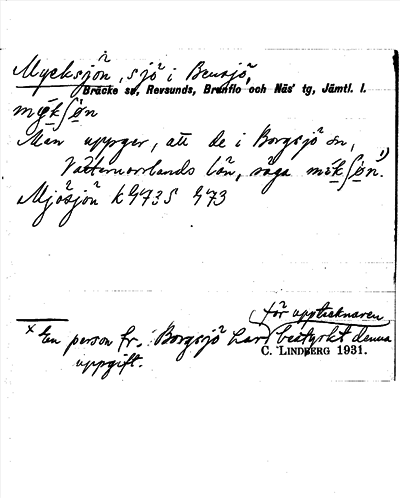 Mycksjön, sjö i Bensjö,
Bräcke sn, Revsunds, Brunflo och Näs' tg, Jämtl. l.
Man uppger, att de i Borgsjö sn,
Västernorrlands län, säga 1)
Mjösjön k 473 S 473
(för upptecknaren
x En person fr. Borgsjö har bestyrkt denna
uppgift.
C. LINDBERG 1931.